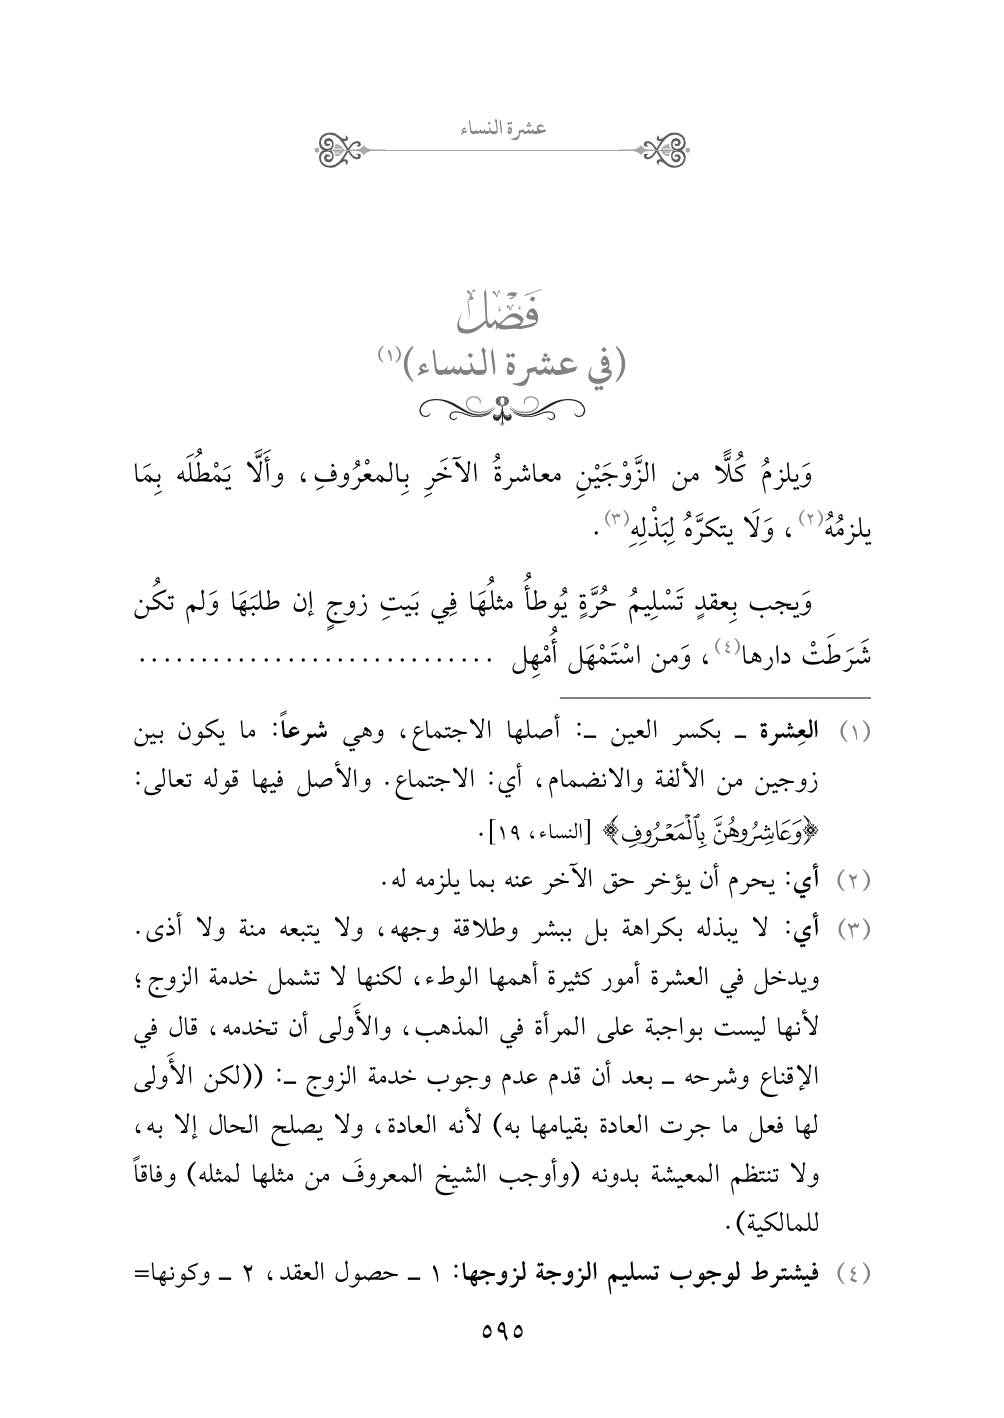 عشرة النساء
فَصْل
(في عشرة النساء)(١)
وَيلزمُ كُلًّا من الزَّوْجَيْنِ معاشرةُ الآخَرِ بِالمعْرُوفِ، وأَلَّا يَمْطُلَه بِمَا
يلزمُهُ(٢)، وَلَا يتكرَّهُ لِبَذْلِهِ(٣).
وَيجب بِعقدٍ تَسْلِيمُ حُرَّةٍ يُوطأُ مثلُهَا فِي بَيتِ زوجٍ إن طلبَهَا وَلم تكُن
شَرَطَتْ دارها(٤)، وَمن اسْتَمْهَل أُمْهِل .............................
(١) العِشرة ـ بكسر العين ـ: أصلها الاجتماع، وهي شرعاً: ما يكون بين
زوجين من الألفة والانضمام، أي: الاجتماع. والأصل فيها قوله تعالى:
﴿وَعَاشِرُوهُنَّ بِٱلْمَعْرُوفِ﴾ [النساء، ١٩].
(٢) أي: يحرم أن يؤخر حق الآخر عنه بما يلزمه له.
(٣) أي: لا يبذله بكراهة بل ببشر وطلاقة وجهه، ولا يتبعه منة ولا أذى.
ويدخل في العشرة أمور كثيرة أهمها الوطء، لكنها لا تشمل خدمة الزوج؛
لأنها ليست بواجبة على المرأة في المذهب، والأَولى أن تخدمه، قال في
الإقناع وشرحه ـ بعد أن قدم عدم وجوب خدمة الزوج ـ: ((لكن الأَولى
لها فعل ما جرت العادة بقيامها به) لأنه العادة، ولا يصلح الحال إلا به،
ولا تنتظم المعيشة بدونه (وأوجب الشيخ المعروفَ من مثلها لمثله) وفاقاً
للمالكية).
(٤) فيشترط لوجوب تسليم الزوجة لزوجها: ١ ـ حصول العقد، ٢ ـ وكونها=
٥٩٥